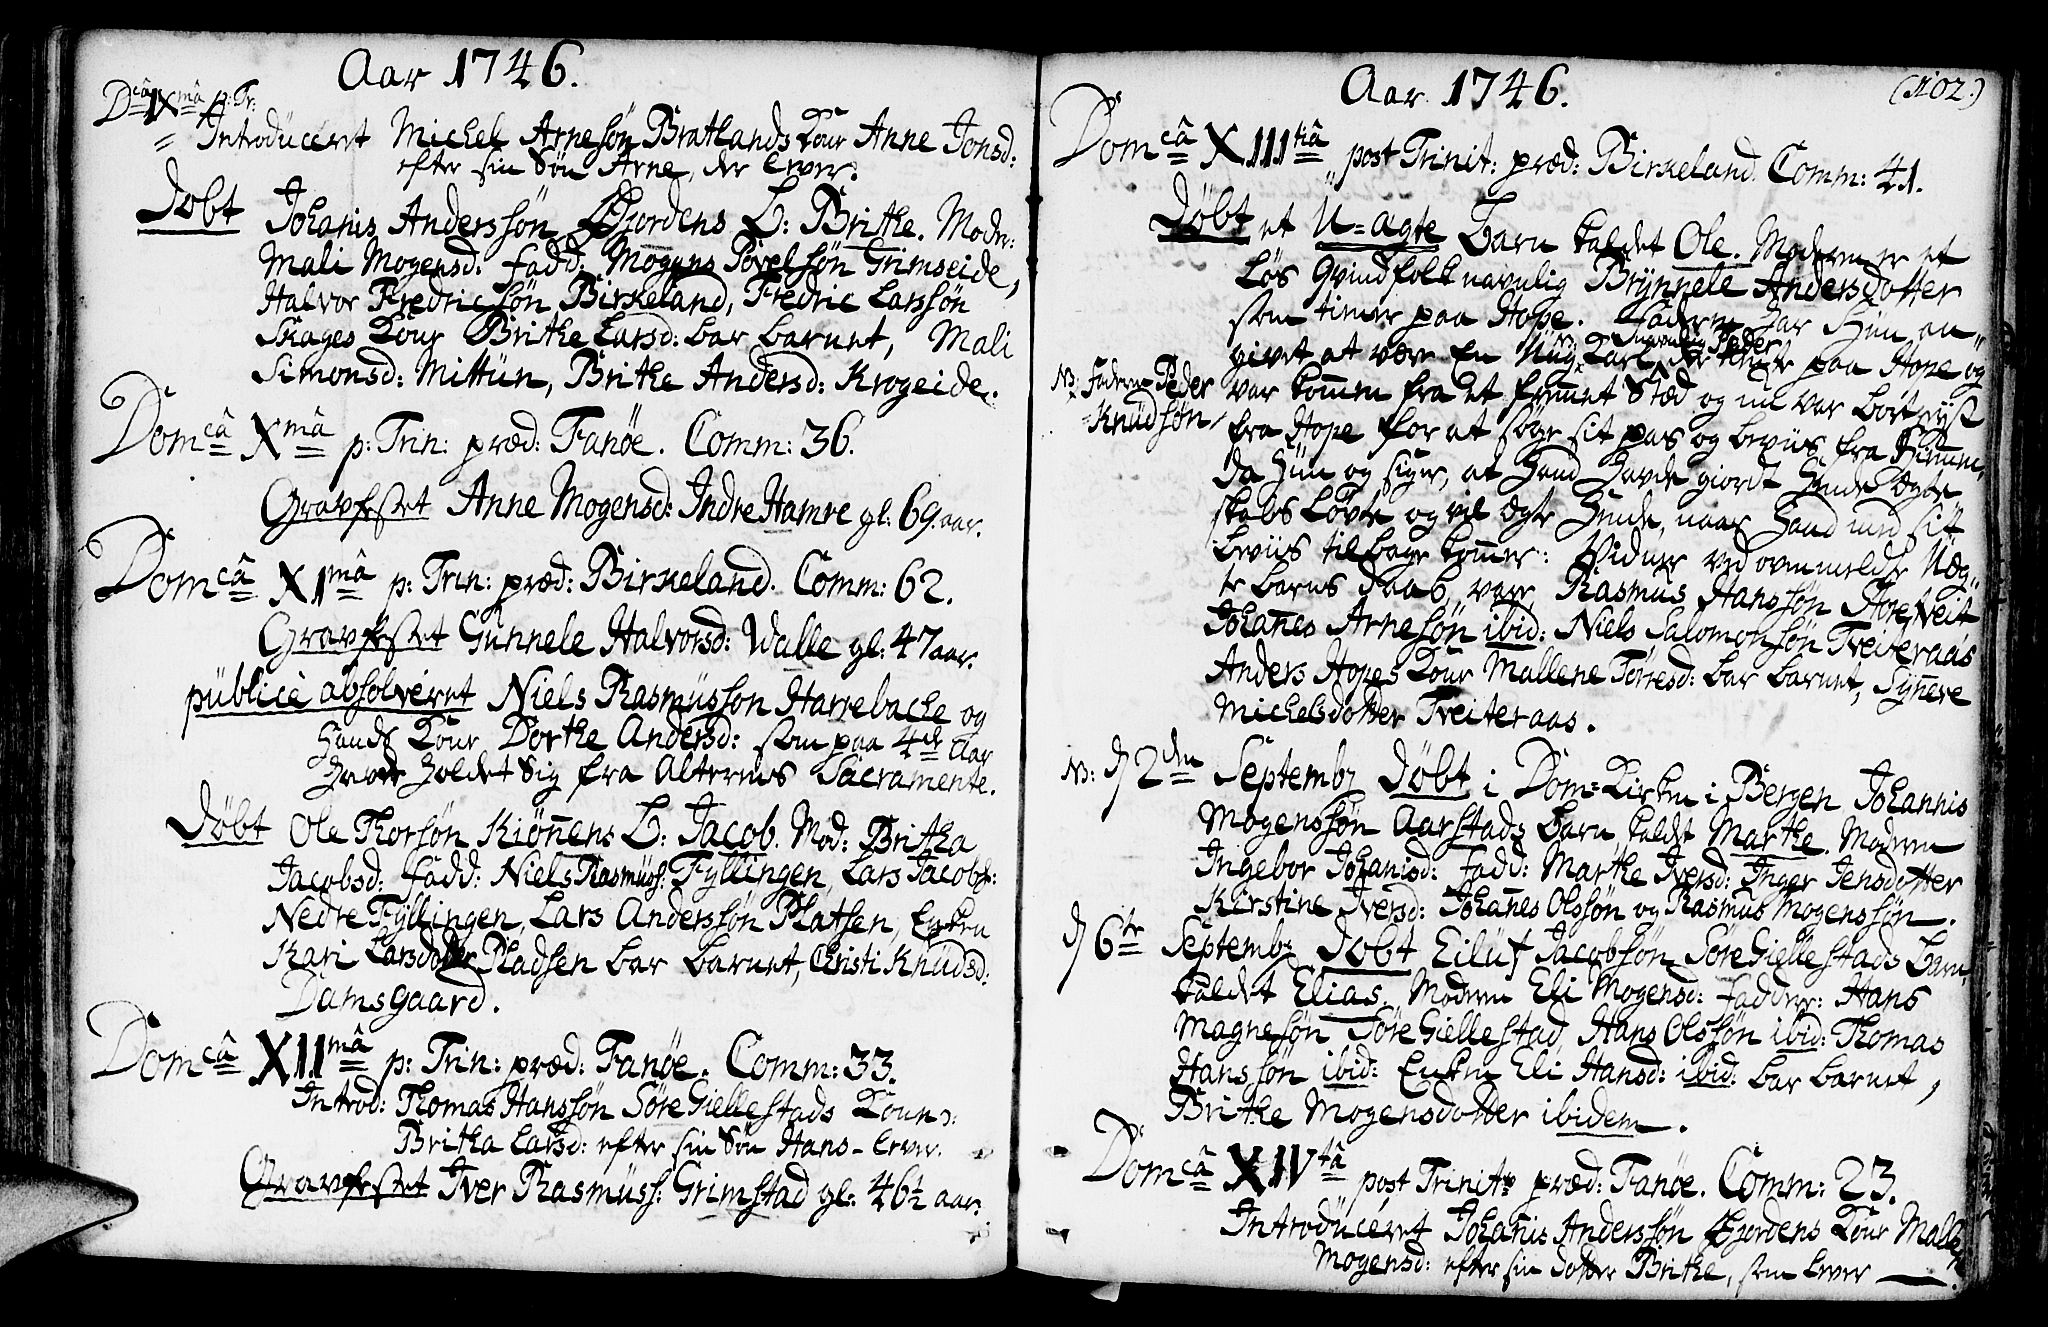 Aar 1746.
Dcâ IXmâ p: Tr:
= Introdúceret Michel Arnesøn Bratlands Kone Anne Jonsd:
efter sin Søn Arne, der lever.
Døbt Johanis Anderssøn Fjordens B: Brithe. Modr:
Mali Mogensd: Fadd: Mogens Povelsøn Grimseide,
Halvor Fredricssøn Birkeland, Fredric Larssøn
Skages Kone Brithe Larsd: bar barnet, Mali
Simonsd: Mittún, Brithe Andersd: Krogeide.
Domcâ Xmâ p: Trin: præd: Fanøe. Comm: 36.
Gravfestet Anne Mogensd: Indre Hamre gl: 69. aar.
Domcâ XImâ p: Trin: præd: Birkeland. Comm: 62.
Gravfestet Gúnnele Halvorsd: Walle gl: 47 aar.
públicè absolveret Niels Rasmússøn Harrebache og
Hands Kone Dorthe Andersd: som paa 4de Aar
havde holdet sig fra Alterens Sacramente.
Døbt Ole Thorsøn Kiønnens B: Jacob. Mod: Britha
Jacobsd: Fadd: Niels Rasmúss: Fyllingen, Lars Jacobs:
Nedre Fyllingen, Lars Anderssøn Platsen, Enken
Kari Larsdotter Pladsen bar barnet, Christi Knudsd:
Damsgaard.
Domcâ XIImâ p: Trin: præd: Fanøe. Comm: 33.
Introd: Thomas Hanssøn Søre Giellestads Kone
Britha Larsd: efter sin Søn Hans - lever.
Gravfestet Iver Rasmúss: Grimstad gl: 46½ aar.
Aar 1746. (102.)
Domcâ XIIItiâ post Trinit: præd: Birkeland. Comm: 41.
Døbt et U=ægte Barn kaldet Ole. Moderen er et
Løs Qvindfolk navnlig Brÿnnele Andersdotter
som tiener paa Hope. Faderen har Hún an=
givet at være en Úng Karl, der tiente paa Hope og
navnlig Peder
NB: Faderen Peder
Knúdsøn
var kommen fra et fremmet Stæd og nu var bortreyst
fra Hope for at søge sit pas og beviis fra
da Hún og siger, at Hand havde giordt Hende Ægte
skabs Løvte og vil ægte Hende, naar Hand med sit
beviis tilbage kommer: Vidner ved ovenmeldte Uæg=
te barns Daab, vare Rasmús Hanssøn Hopetveit
Johanes Arnesøn ibid: Niels Salomonsøn Tveiteraas
Anders Hopes Kone Mallene Torresd: bar barnet, Synneve
Michelsdotter Tveiteraas.
NB: d 2den Septembr Døbt i Dom=Kirken i Bergen Johannis
Mogenssøn Aarstads Barn kaldt Marthe. Moderen
Ingebor Johanisd: Fadd: Marthe Iversd: Inger Jensdotter
Kirstine Iversd: Johanes Olssøn og Rasmus Mogenssøn.
d 6te Septembr Døbt Eilúf Jacobsøn Søre Giellestads Barn
kaldet Elias. Moderen Eli Mogensd: Faddere: Hans
Magnesøn Søre Giellestad, Hans Olssøn ibid: Thomas
Hanssøn ibid: Enken Eli Hansd: ibid: bar barnet,
Brithe Mogensdotter ibidem.
Domcâ XIVtâ post Trinit: præd: Fanøe. Comm: 23.
Introdúceret Johanis Anderssøn Fjordens Kone Mallen
Mogensd: efter sin dotter Brithe, som lever